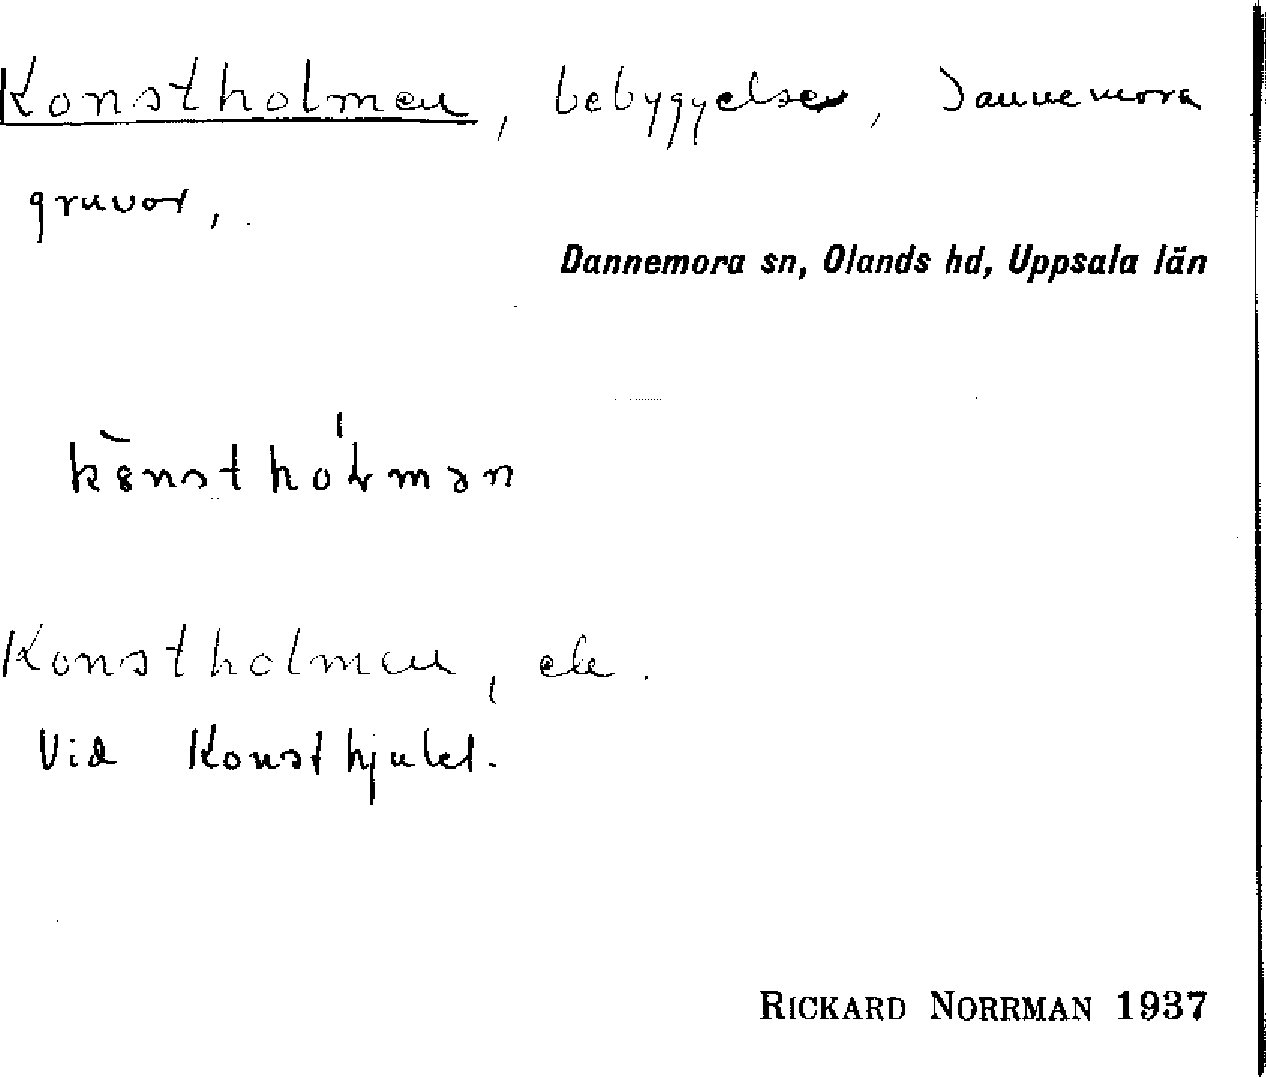 Konstholmen, bebyggelse, Dannemora
gruvor,
Dannemora sn, Olands hd, Uppsala län
Konstholmen, ek.
Vid Konsthjulet.
RICKARD NORRMAN 1937